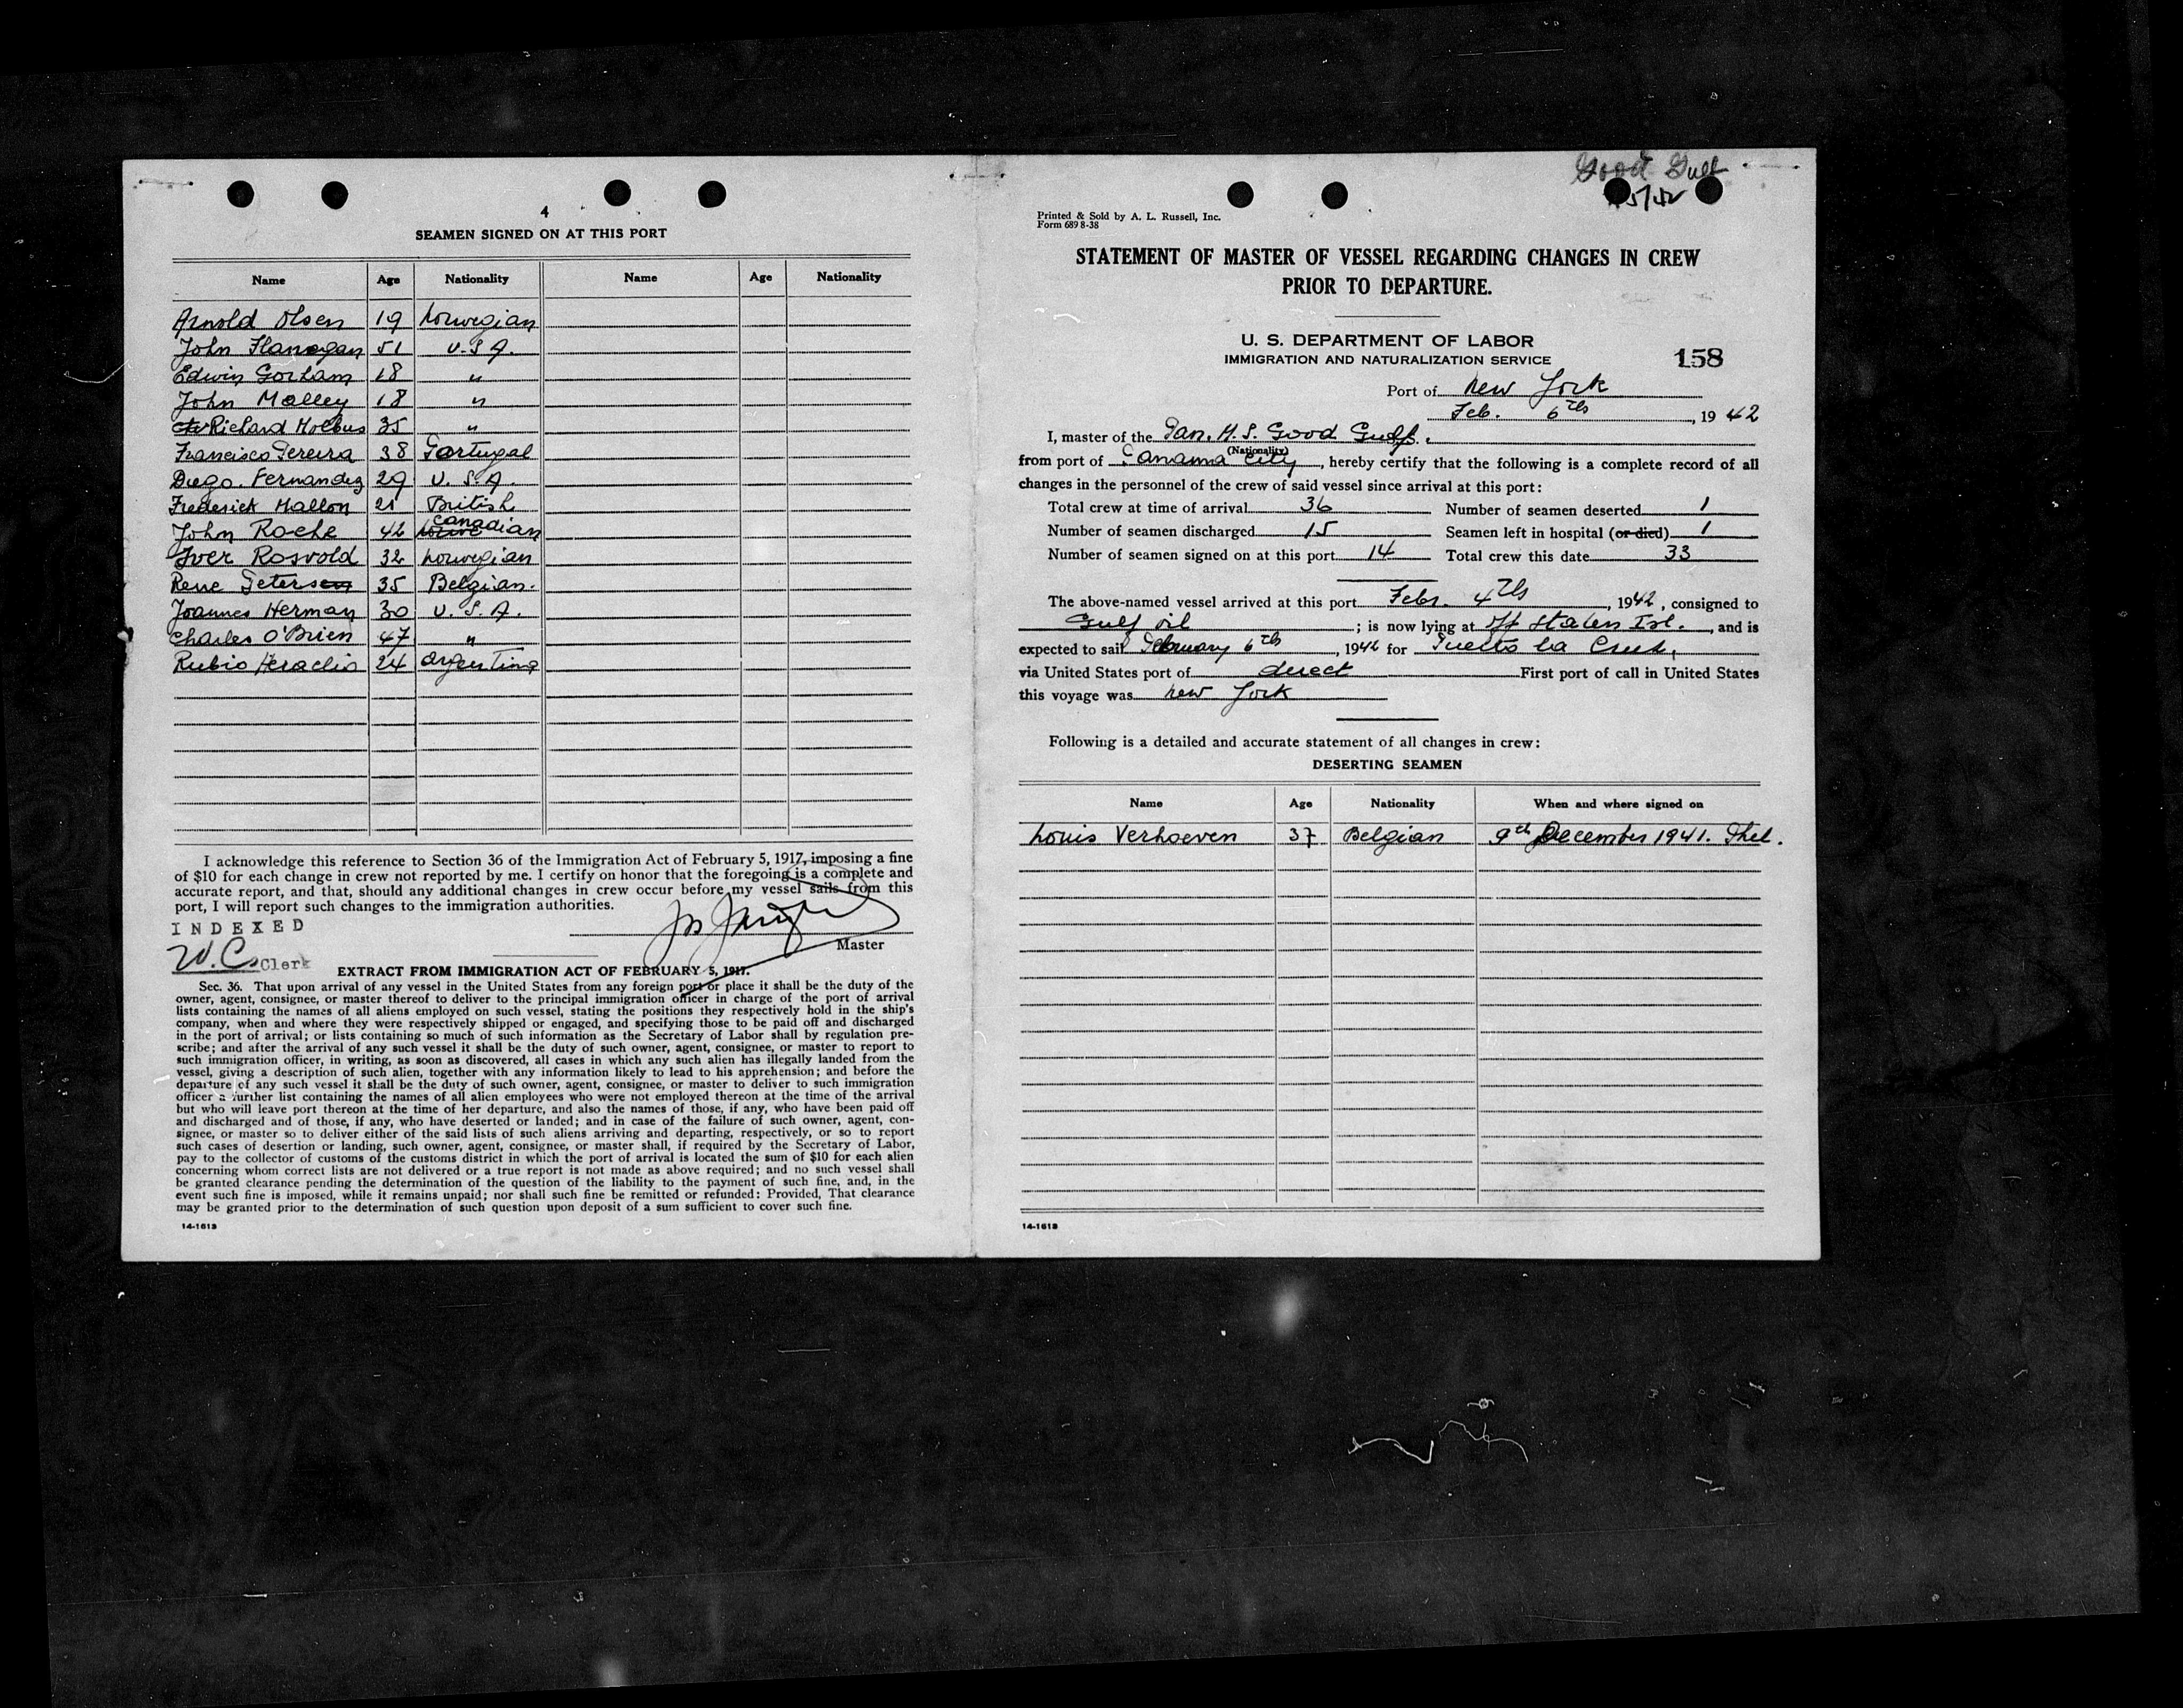 4
SEAMEN SIGNED ON AT THIS PORT
Name Age Nationality Name Age Nationality
Arnold Olsen 19 Norwegian
John Flanagan 51 U.S.A.
Edwin Gorham 18 "
John Malley 18 "
Richard Holbus 35 "
Francisco Pereira 38 Portugal
Diego. Fernandez 29 U.S.A.
Frederick Mallon 21 British
John Roche 42 Canadian
Iver Rosvold 32 Norwegian
Rene Petersen 35 Belgian.
Joannes Herman 30 U.S.A.
Charles O'Brien 47 "
Rubio Heraclio 24 Argentina
I acknowledge this reference to Section 36 of the Immigration Act of February 5, 1917, imposing a fine
of $10 for each change in crew not reported by me. I certify on honor that the foregoing is a complete and
accurate report, and that, should any additional changes in crew occur before my vessel sails from this
port, I will report such changes to the immigration authorities.
INDEXED
Master
W.C. Clerk
EXTRACT FROM IMMIGRATION ACT OF FEBRUARY 5, 1917.
Sec. 36. That upon arrival of any vessel in the United States from any foreign port or place it shall be the duty of the
owner, agent, consignee, or master thereof to deliver to the principal immigration officer in charge of the port of arrival
lists containing the names of all aliens employed on such vessel, stating the positions they respectively hold in the ship's
company, when and where they were respectively shipped or engaged, and specifying those to be paid off and discharged
in the port of arrival; or lists containing so much of such information as the Secretary of Labor shall by regulation pre-
scribe; and after the arrival of any such vessel it shall be the duty of such owner, agent, consignee, or master to report to
such immigration officer, in writing, as soon as discovered, all cases in which any such alien has illegally landed from the
vessel, giving a description of such alien, together with any information likely to lead to his apprehension; and before the
departure of any such vessel it shall be the duty of such owner, agent, consignee, or master to deliver to such immigration
officer a further list containing the names of all alien employees who were not employed thereon at the time of the arrival
but who will leave port thereon at the time of her departure, and also the names of those, if any, who have been paid off
and discharged and of those, if any, who have deserted or landed; and in case of the failure of such owner, agent, con-
signee, or master so to deliver either of the said lists of such aliens arriving and departing, respectively, or so to report
such cases of desertion or landing, such owner, agent, consignee, or master shall, if required by the Secretary of Labor,
pay to the collector of customs of the customs district in which the port of arrival is located the sum of $10 for each alien
concerning whom correct lists are not delivered or a true report is not made as above required; and no such vessel shall
be granted clearance pending the determination of the question of the liability to the payment of such fine, and, in the
event such fine is imposed, while it remains unpaid; nor shall such fine be remitted or refunded: Provided, That clearance
may be granted prior to the determination of such question upon deposit of a sum sufficient to cover such fine.
14-1613
Good Gulf
Printed & Sold by A. L. Russell, Inc.
Form 689 8-38
STATEMENT OF MASTER OF VESSEL REGARDING CHANGES IN CREW
PRIOR TO DEPARTURE.
U. S. DEPARTMENT OF LABOR
IMMIGRATION AND NATURALIZATION SERVICE
158
Port of New York
Feb. 6th, 1942
I, master of the Pan. M.S. Good Gulf.
(Nationality)
from port of Panama City, hereby certify that the following is a complete record of all
changes in the personnel of the crew of said vessel since arrival at this port:
Total crew at time of arrival 36 Number of seamen deserted 1
Number of seamen discharged 15 Seamen left in hospital (or died) 1
Number of seamen signed on at this port 14 Total crew this date 33
The above-named vessel arrived at this port Febr. 4th, 1942, consigned to
Gulf oil; is now lying at off Staten Isl., and is
expected to sail February 6th, 1942 for Puerto La Cruz,
via United States port of direct First port of call in United States
this voyage was New York
Following is a detailed and accurate statement of all changes in crew:
DESERTING SEAMEN
Name Age Nationality When and where signed on
Louis Verhoeven 37 Belgian 9th December 1941. Phil.
14-1613